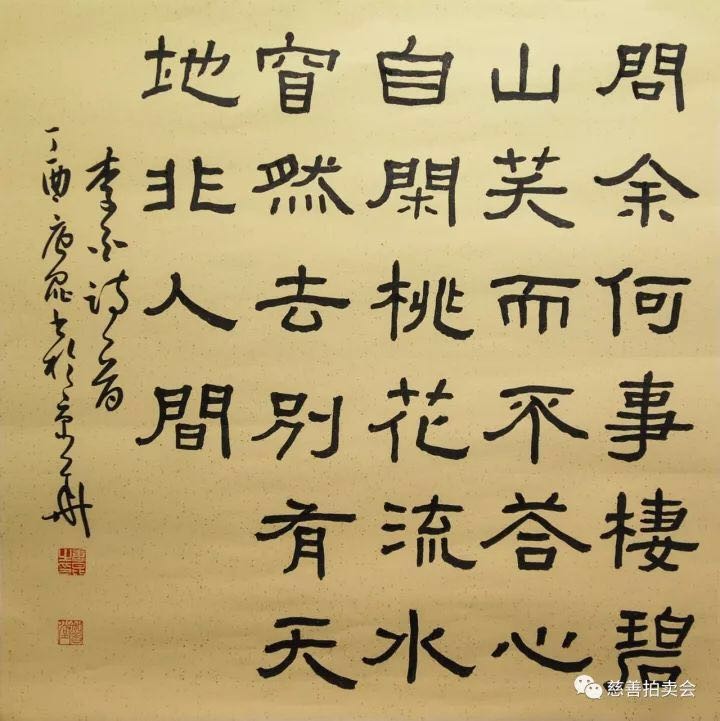 問余何事棲碧
山笑而不答心
自閑桃花流水
窅然去別有天
地非人間
李白詩一首
丁酉唐昆書於京華
慈善拍卖会